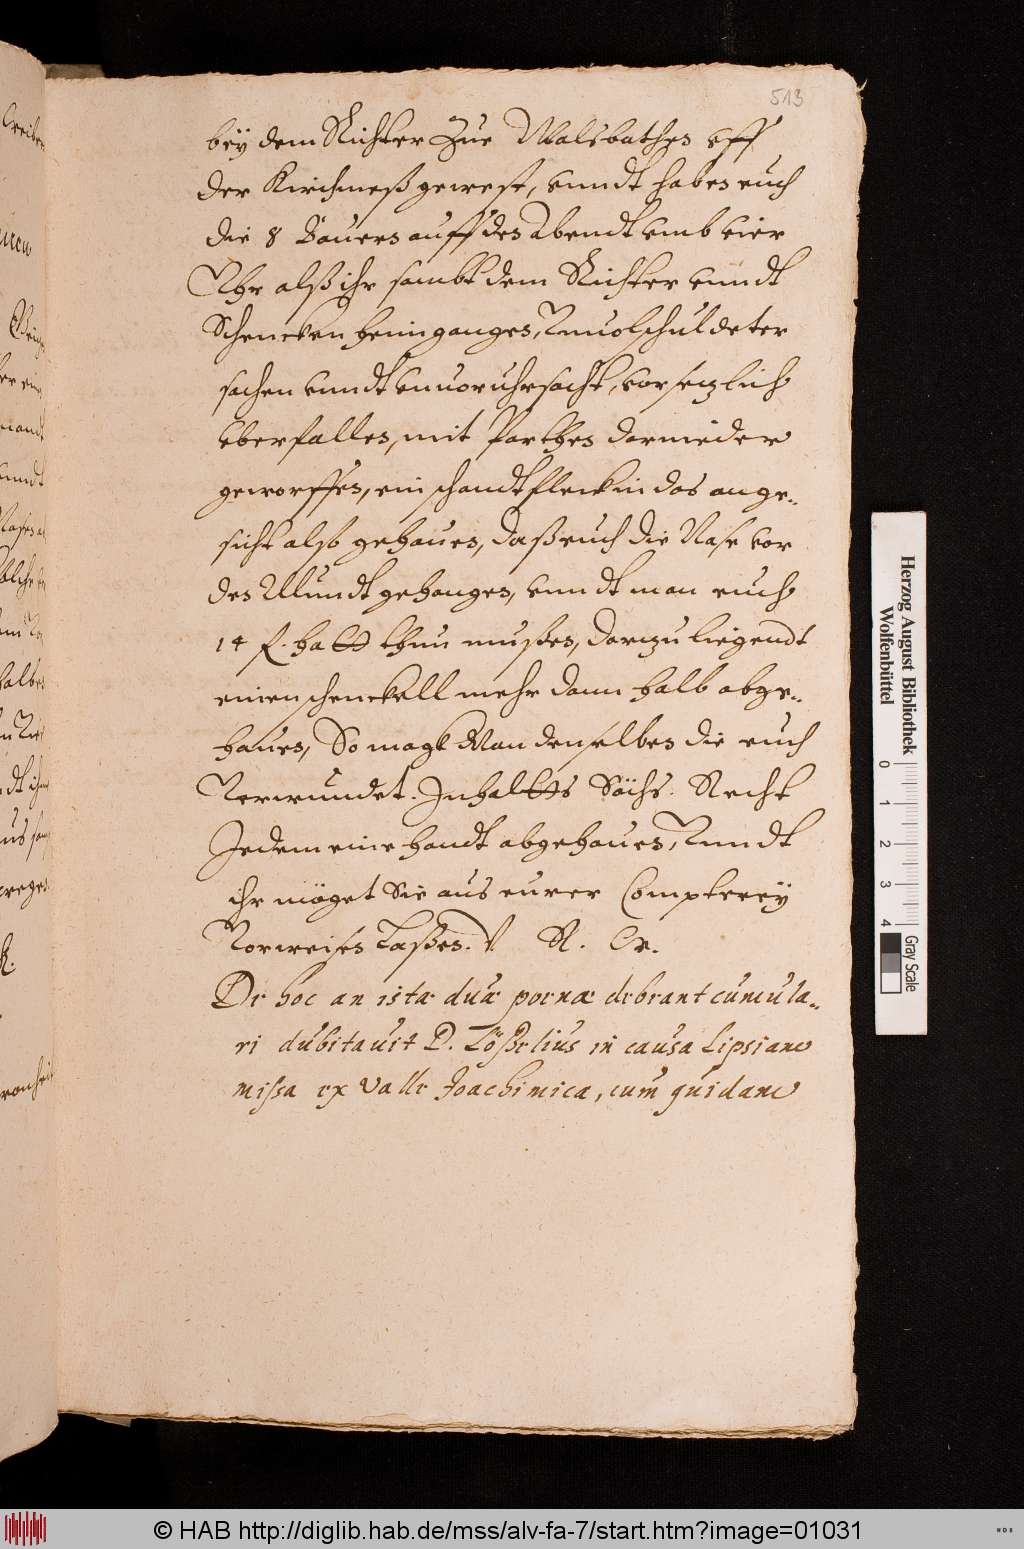 513
beÿ dem Richter Zue Malsbachen vff
der Kirchmeß gewest, vnndt haben euch
die 8 Bauern auff den Abendt vmb vier
Vhr alß ihr sambt dem Richter vnndt
Schencken heimgangen, Vnuorschuldeter
sachen vnndt vnuoruhrsacht, vorsezlich
vberfallen, mit Parthen darnieder
geworffen, ein schandtfleck in das ange-
sicht alß gehauen, daß euch die Nase vor
den Mundt gehangen, vnndt man euch
14 hafft thun mußen, darzu liegendt
einen schenckell mehr dann halb abge-
hauen, So magk Man denselben die euch
Verwundet. Inhalts Sächs. Recht
Jedem eine handt abgehauen, Vnndt
ihr möget Sie aus eurer Compterey
Vorweisen Laßen. V R. W.
De hoc an istæ duæ poenæ debeant cumula-
ri dubitauit D. Lößelius in causa Lipsiam
missa ex Valle Joachimica, cum quidam
Herzog August Bibliothek
Wolfenbüttel
0 1 2 3 4
Gray Scale
© HAB http://diglib.hab.de/mss/alv-fa-7/start.htm?image=01031